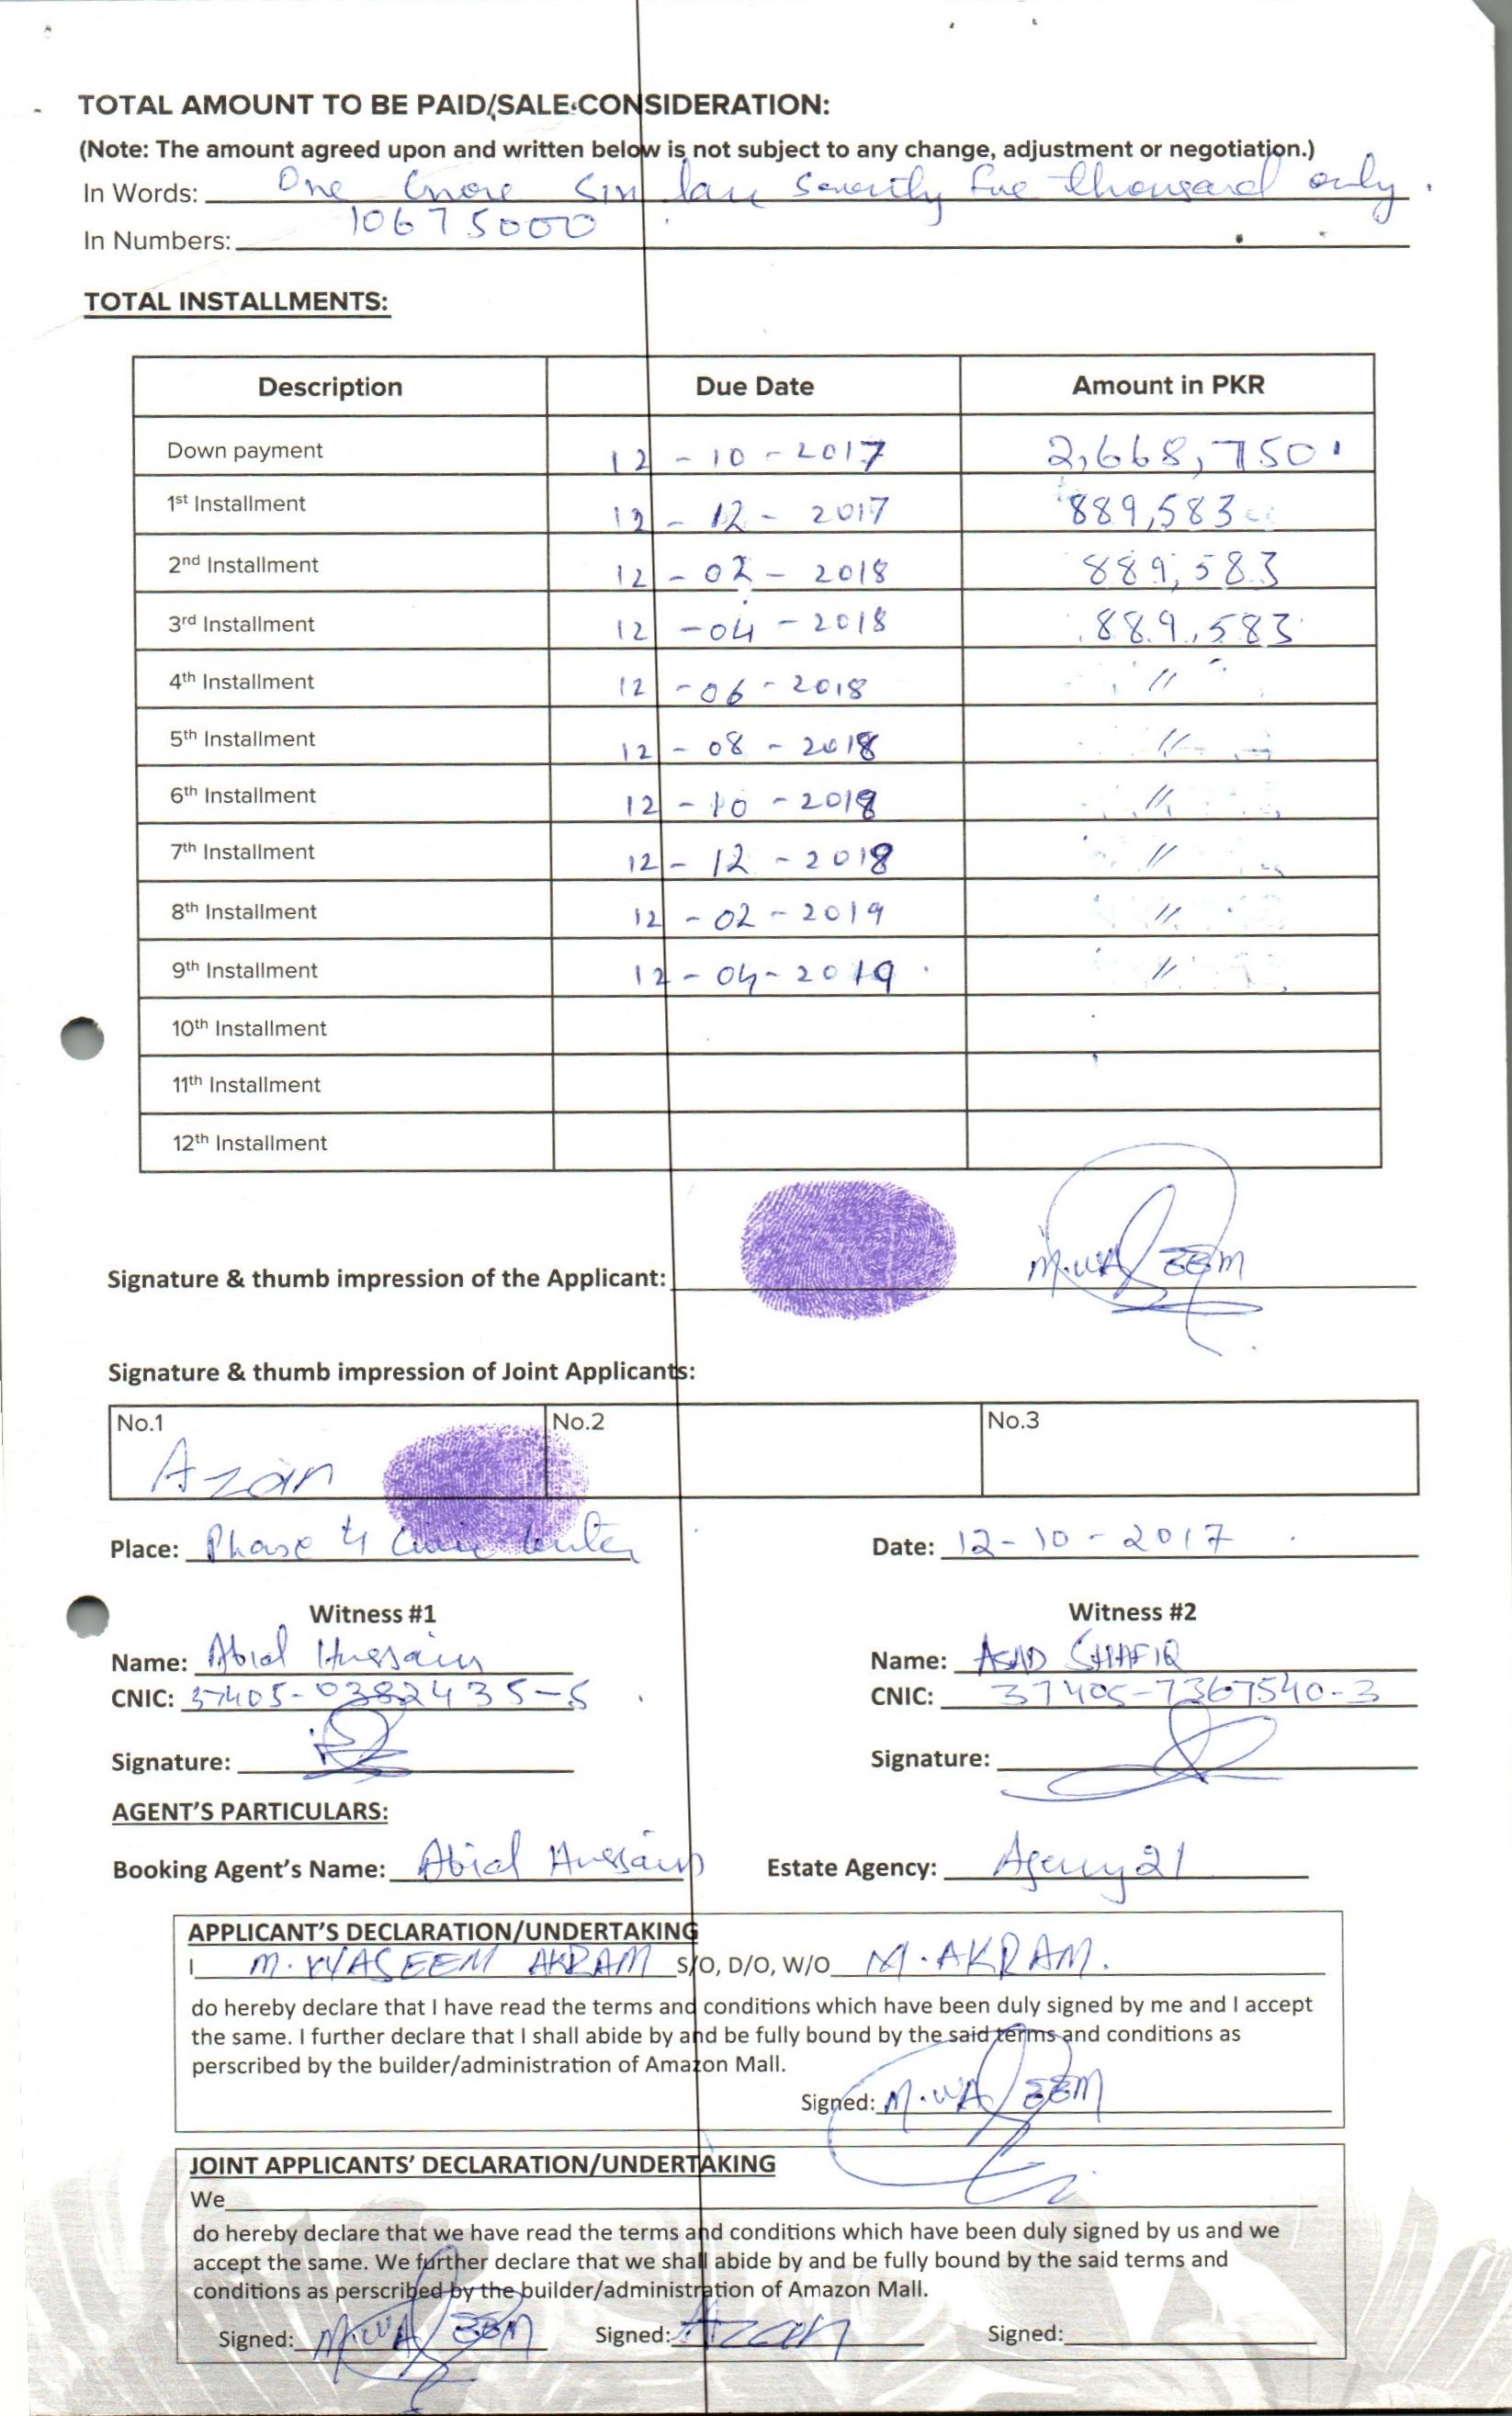 TOTAL AMOUNT TO BE PAID/SALE CONSIDERATION:
(Note: The amount agreed upon and written below is not subject to any change, adjustment or negotiation.)
In Words: One Crore Six lac Seventy five thousand only.
In Numbers: 10675000
TOTAL INSTALLMENTS:
Description Due Date Amount in PKR
Down payment 12-10-2017 2,668,750
1st Installment 12-12-2017 889,583
2nd Installment 12-02-2018 889,583
3rd Installment 12-04-2018 889,583
4th Installment 12-06-2018 //
5th Installment 12-08-2018 //
6th Installment 12-10-2018 //
7th Installment 12-12-2018 //
8th Installment 12-02-2019 //
9th Installment 12-04-2019 //
10th Installment
11th Installment
12th Installment
Signature & thumb impression of the Applicant: M.WASEEM
Signature & thumb impression of Joint Applicants:
No.1 Azan No.2 No.3
Place: Phase 4 Civic Center Date: 12-10-2017
Witness #1 Witness #2
Name: Abid Hussain Name: ASAD SHAFIQ
CNIC: 37405-0382435-5 CNIC: 37405-7367540-3
Signature: Signature:
AGENT'S PARTICULARS:
Booking Agent's Name: Abid Hussain Estate Agency: Agency 21
APPLICANT'S DECLARATION/UNDERTAKING
I M.WASEEM AKRAM S/O, D/O, W/O M.AKRAM.
do hereby declare that I have read the terms and conditions which have been duly signed by me and I accept
the same. I further declare that I shall abide by and be fully bound by the said terms and conditions as
perscribed by the builder/administration of Amazon Mall.
Signed: M.WASEEM
JOINT APPLICANTS' DECLARATION/UNDERTAKING
We
do hereby declare that we have read the terms and conditions which have been duly signed by us and we
accept the same. We further declare that we shall abide by and be fully bound by the said terms and
conditions as perscribed by the builder/administration of Amazon Mall.
Signed: M.WASEEM Signed: Azan Signed: